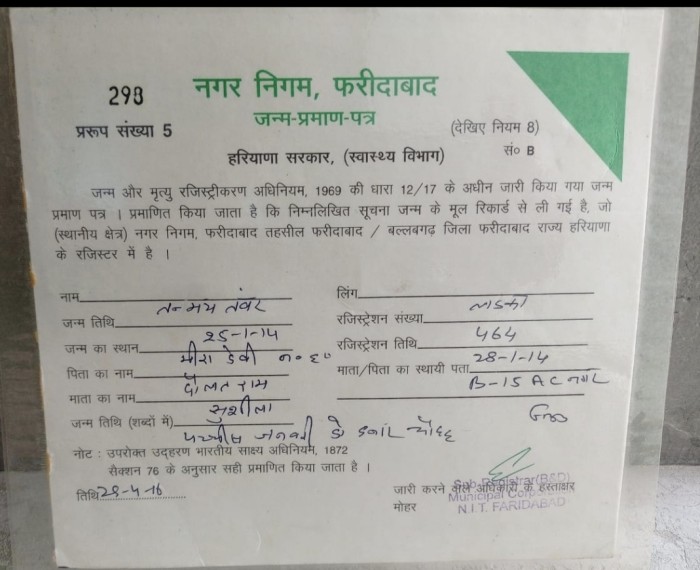 298
नगर निगम, फरीदाबाद
जन्म-प्रमाण-पत्र
प्ररूप संख्या 5
(देखिए नियम 8)
हरियाणा सरकार, (स्वास्थ्य विभाग)
सं० B
जन्म और मृत्यु रजिस्ट्रीकरण अधिनियम, 1969 की धारा 12/17 के अधीन जारी किया गया जन्म
प्रमाण पत्र । प्रमाणित किया जाता है कि निम्नलिखित सूचना जन्म के मूल रिकार्ड से ली गई है, जो
(स्थानीय क्षेत्र) नगर निगम, फरीदाबाद तहसील फरीदाबाद / बल्लबगढ़ जिला फरीदाबाद राज्य हरियाणा
के रजिस्टर में है ।
नाम तन्मय तंवर
लिंग लडका
जन्म तिथि 25-1-14
रजिस्ट्रेशन संख्या 464
जन्म का स्थान मीरा देवी न० ६०
रजिस्ट्रेशन तिथि 28-1-14
पिता का नाम दौलत राम
माता/पिता का स्थायी पता B-15 A C नगर
माता का नाम सुशीला
जन्म तिथि (शब्दों में) पच्चीस जनवरी दो हजार चौदह
नोट : उपरोक्त उद्हरण भारतीय साक्ष्य अधिनियम, 1872
सैक्शन 76 के अनुसार सही प्रमाणित किया जाता है ।
तिथि 28-4-16
जारी करने वाले अधिकारी के हस्ताक्षर
मोहर
Sub Registrar(B&D)
Municipal Corporation
N.I.T. FARIDABAD